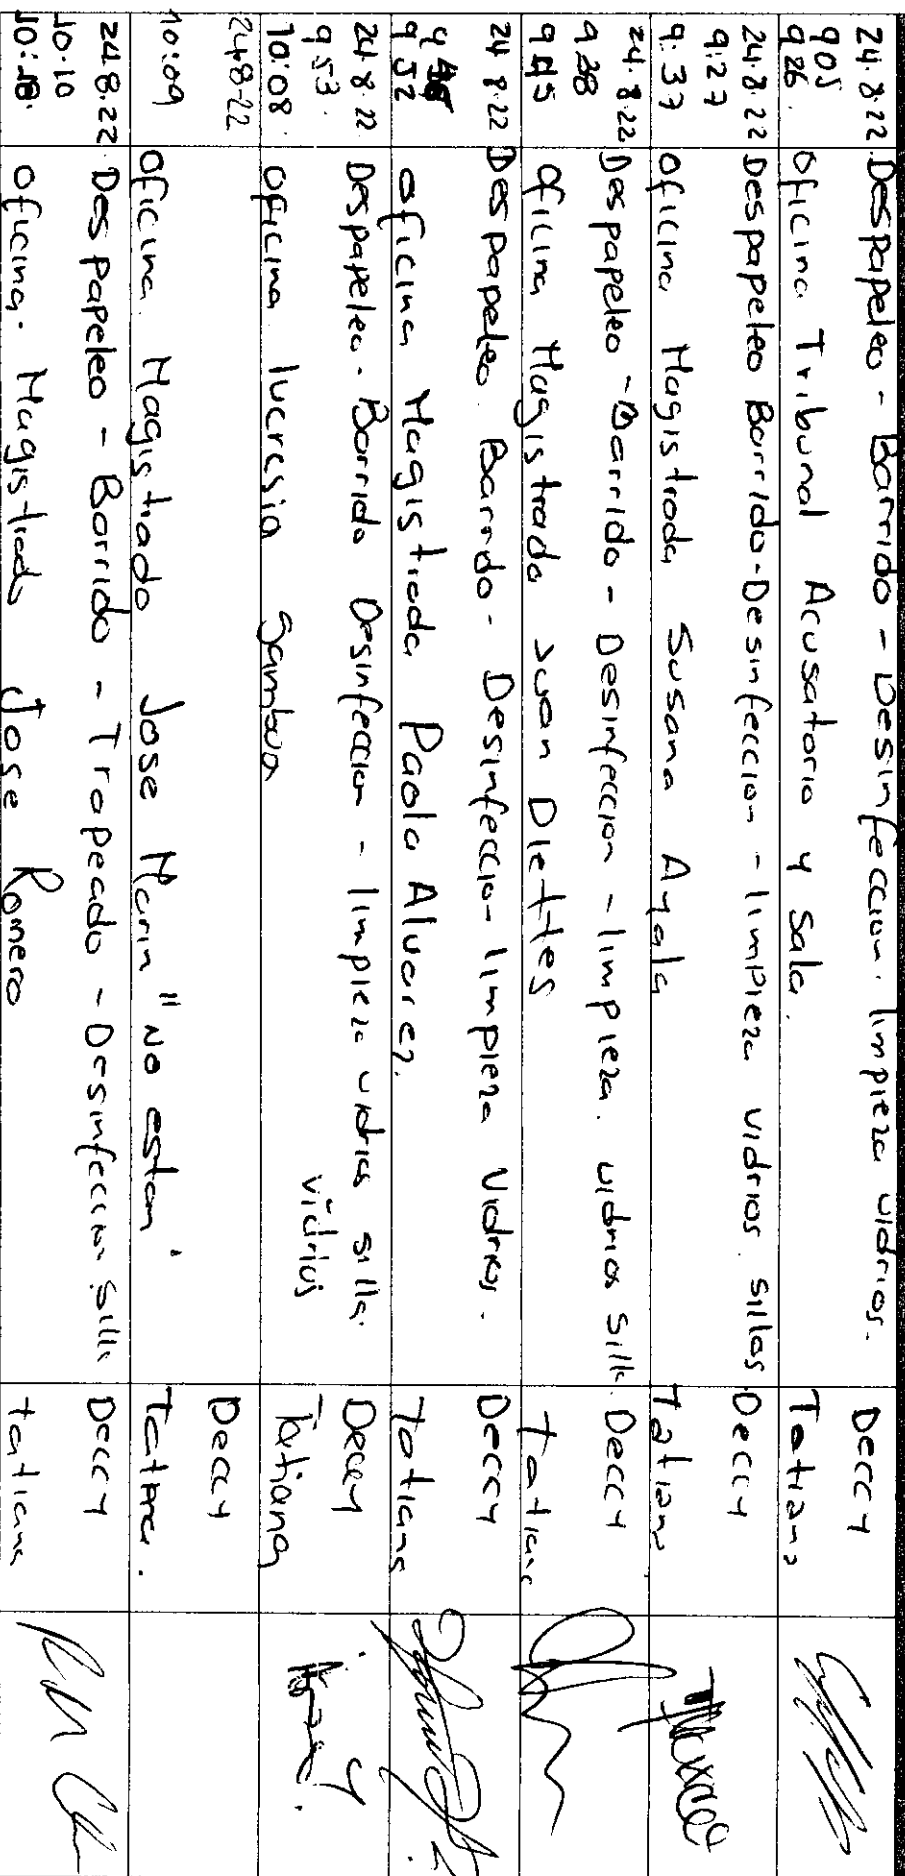 24.8.22 Despapeleo - Barrido - Desinfeccion. limpieza vidrios. Deccy
9 05
9 26. Oficina Tribunal Acusatorio y Sala. Tatiana
24.8.22 Despapeleo Barrido-Desinfeccion - limpieza vidrios. sillas Deccy
9:27
9:37 Oficina Magistrada Susana Ayala Tatiana
24.8.22 Despapeleo - Barrido - Desinfeccion - limpieza. vidrios silla. Deccy
9 38
9 45 Oficina Magistrado Juan Diettes Tatiana
24 8.22 Despapeleo. Barrido - Desinfeccion limpieza Vidrios. Deccy
9 52 oficina Magistrada Paola Alvarez. Tatiana
24.8.22 Despapeleo. Barrido Desinfeccion - limpieza vidrios silla. Deccy
9 53. vidrios
10:08. Oficina lucresia Gamboa Tatiana
24.8-22 Deccy
10:09 Oficina. Magistrado Jose Marin " No estan. Tatiana.
24.8.22. Despapeleo - Barrido - Trapeado - Desinfeccion silla Deccy
10.10
10:18. Oficina. Magistrado Jose Romero tatiana